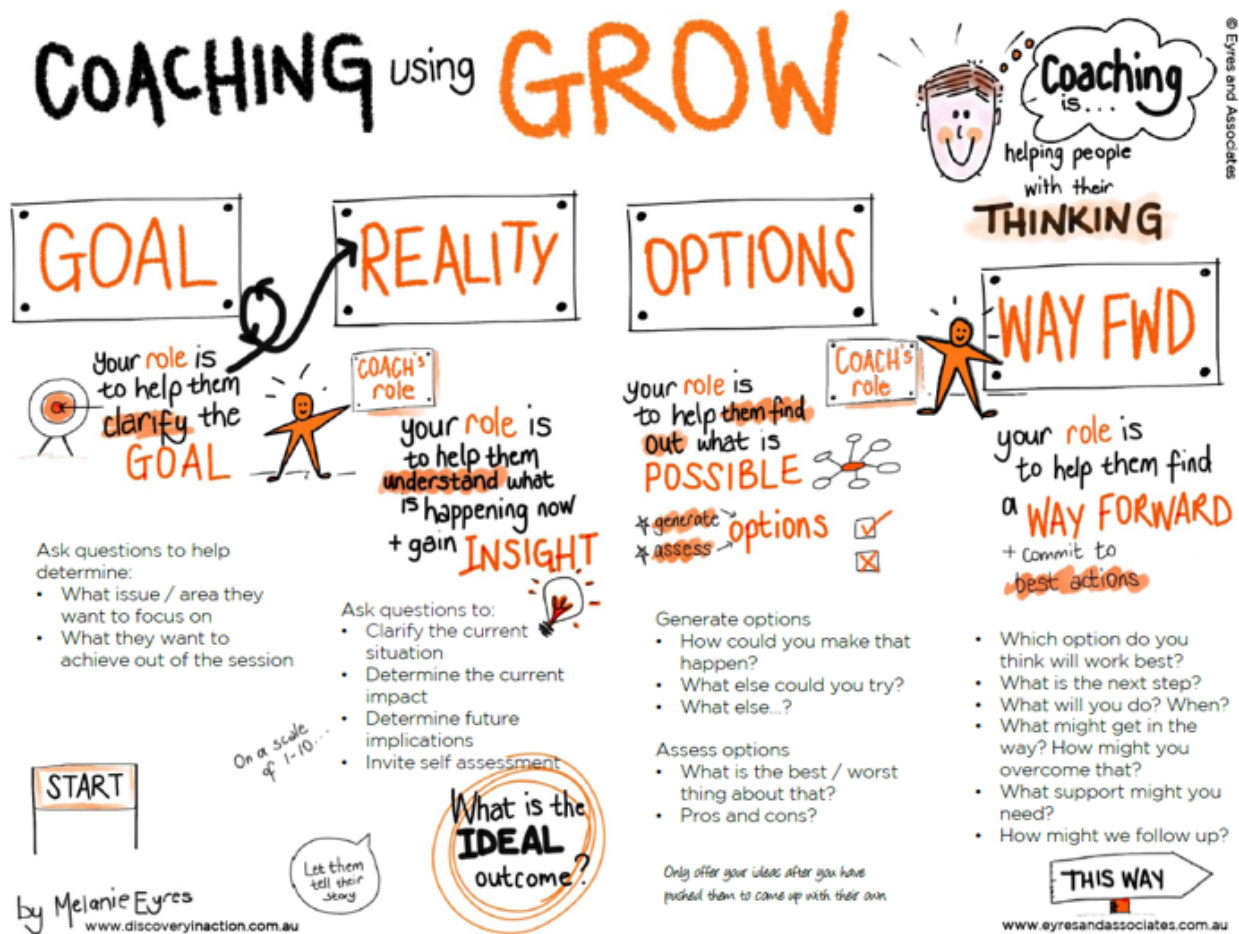 COACHING using GROW
© Eyres and Associates
Coaching
is...
helping people
with their
THINKING
GOAL
your role is
to help them
clarify the
GOAL
Ask questions to help
determine:
• What issue / area they
want to focus on
• What they want to
achieve out of the session
START
by Melanie Eyres
www.discoveryinaction.com.au
REALITY
COACH's
role
your role is
to help them
understand what
is happening now
+ gain INSIGHT
Ask questions to:
• Clarify the current
situation
• Determine the current
impact
• Determine future
implications
• Invite self assessment
On a scale
of 1-10...
Let them
tell their
story
What is the
IDEAL
outcome?
OPTIONS
your role is
to help them find
out what is
POSSIBLE
generate
assess
options
Generate options
• How could you make that
happen?
• What else could you try?
• What else...?
Assess options
• What is the best / worst
thing about that?
• Pros and cons?
Only offer your ideas after you have
pushed them to come up with their own
COACH's
role
WAY FWD
your role is
to help them find
a WAY FORWARD
+ commit to
best actions
• Which option do you
think will work best?
• What is the next step?
• What will you do? When?
• What might get in the
way? How might you
overcome that?
• What support might you
need?
• How might we follow up?
THIS WAY
www.eyresandassociates.com.au